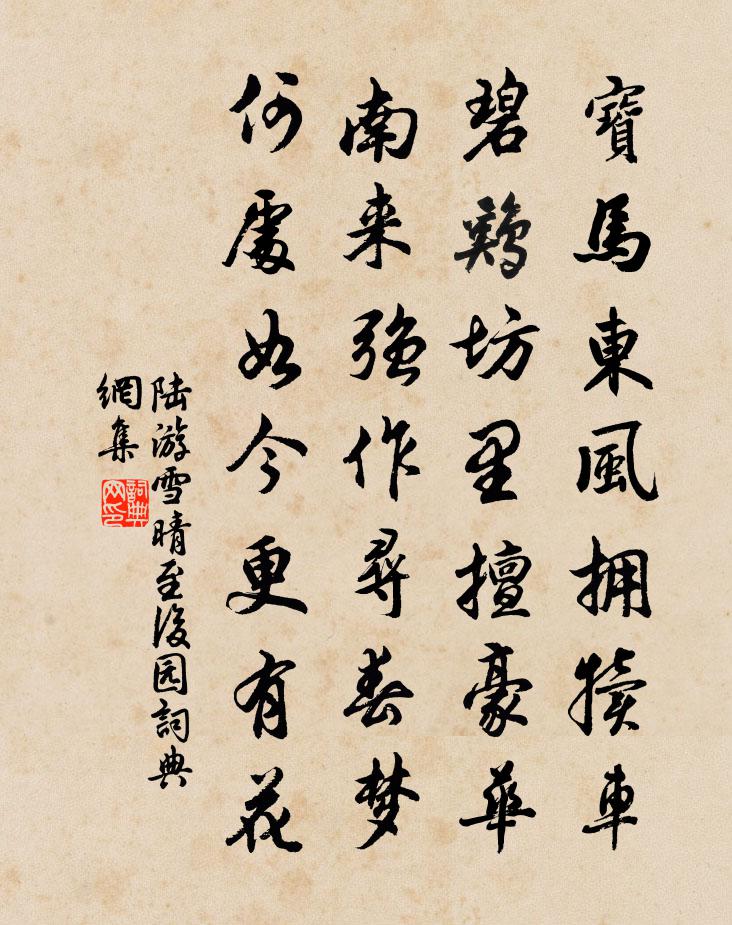 寶馬東風拥犢車
碧鷄坊里擅豪華
南来強作尋春梦
何處如今更有花
陆游雪晴至後园詞典
網集
詞典
网印